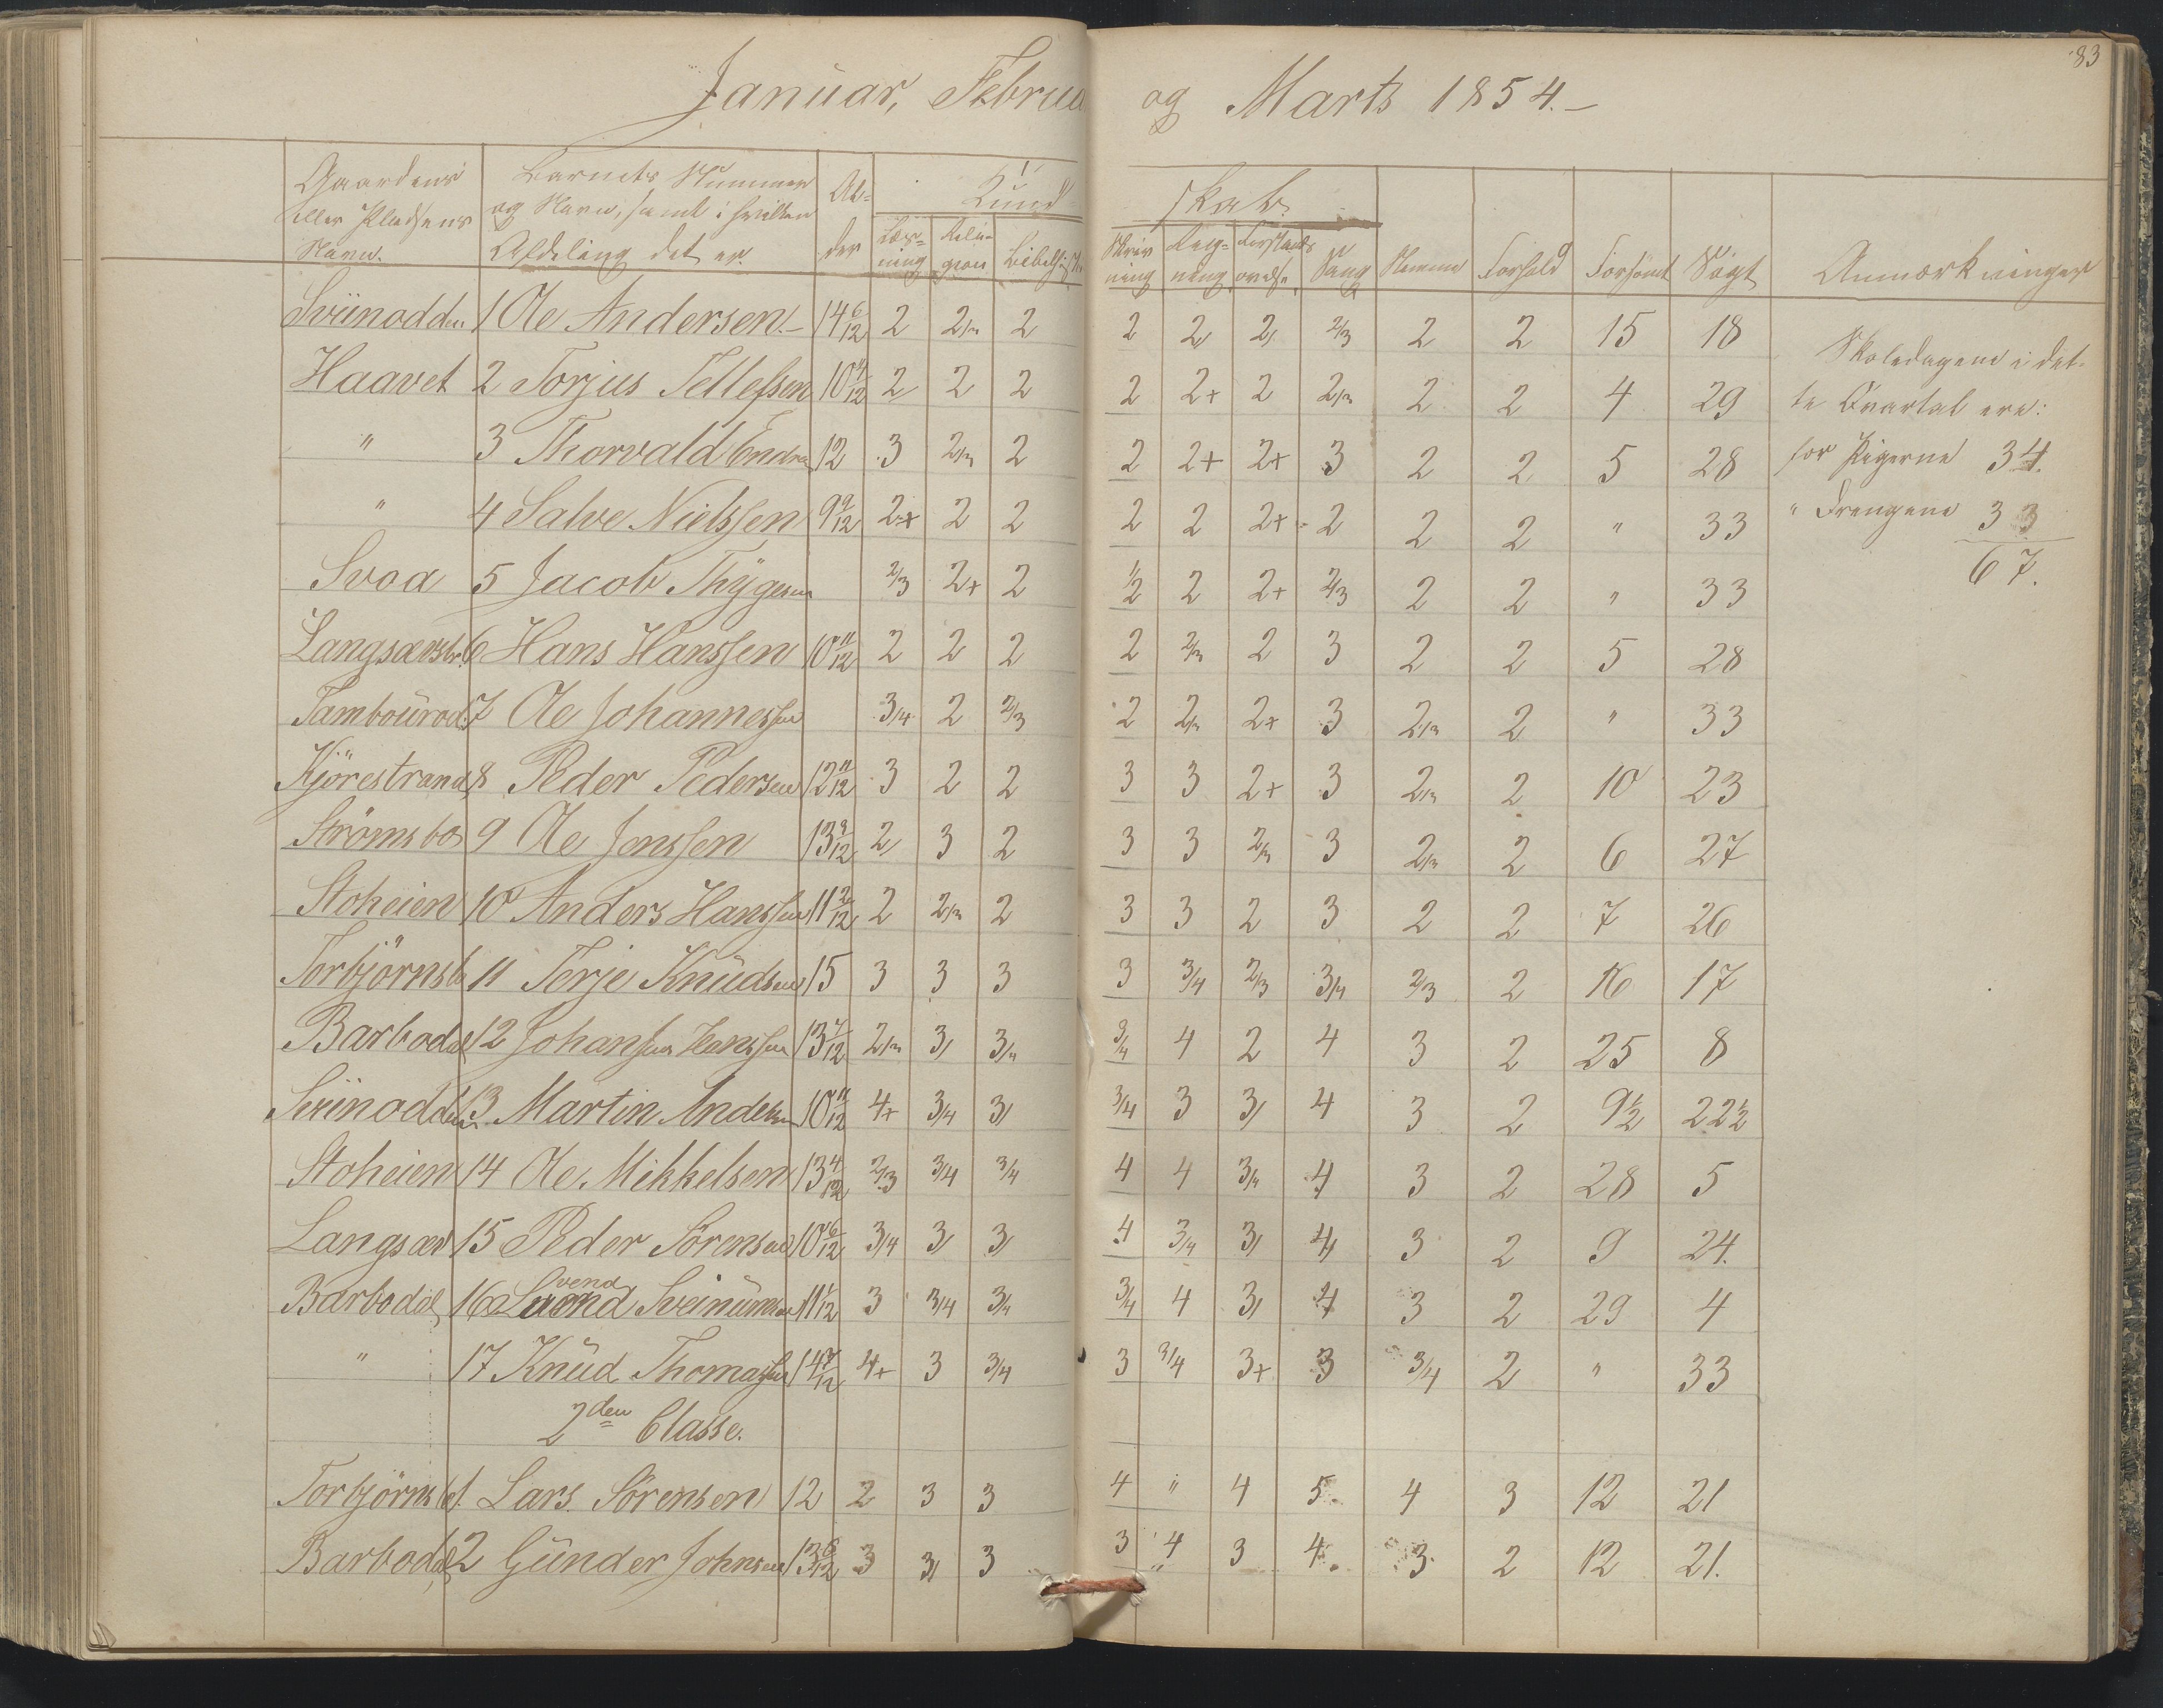 83
Januar, Februa og Marts 1854.–
Gaardens eller Pladsens Navn. | Barnets Nummer og Navn, samt i hvilken Afdeling det er. | Alder | Kundskab: Læsning | Religion | Bibelhist. | Skrivning | Regning | Forstands øvelse | Sang | Nemme | Forhold | Forsömt | Sögt | Anmærkninger
Sviinodden 1 Ole Andersen.– 14 6/12 2 2/3 2 2 2 2 2/3 2 2 15 18
Haavet 2 Torjus Tellefsen 10 4/12 2 2 2 2 2+ 2 2/3 2 2 4 29
" 3 Thorvald Endre 12 3 2/3 2 2 2+ 2+ 3 2 2 5 28
" 4 Salve Nielssen 9 9/12 2+ 2 2 2 2 2+ 2 2 2 " 33
Svoa 5 Jacob Thygesen 2/3 2+ 2 1/2 2 2+ 2/3 2 2 " 33
Langsæsbr. 6 Hans Hanssen 10 11/12 2 2 2 2 2/3 2 3 2 2 5 28
Tambourod. 7 Ole Johannessen 3/4 2 2/3 2 2/3 2+ 3 2/3 2 " 33
Kjörestrand 8 Peder Pedersen 12 11/12 3 2 2 3 3 2+ 3 2/3 2 10 23
Strömsbo 9 Ole Jenssen 13 9/12 2 3 2 3 3 2/3 3 2/3 2 6 27
Stoheien 10 Anders Hanssen 11 2/12 2 2/3 2 3 3 2 3 2 2 7 26
Torbjörnsb 11 Terje Knudsen 15 3 3 3 3 3/4 2/3 3/4 2/3 2 16 17
Barbodal 12 Johan Hanssen 13 7/12 2/3 3 3/4 3/4 4 2 4 3 2 25 8
Sviinodden 13 Martin Andersen 10 11/12 4+ 3/4 3 3/4 3 3 4 3 2 9½ 22½
Stoheien 14 Ole Mikkelsen 13 4/12 2/3 3/4 3/4 4 4 3/4 4 3 2 28 5
Langsæ 15 Peder Sörensen 10 6/12 3/4 3 3 4 3/4 3 4 3 2 9 24.
Barbodal 16 Svend Sveinumsen 11 1/12 3 3/4 3/4 3/4 4 3 4 3 2 29 4
" 17 Knud Thomassen 14 7/12 4+ 3 3/4 3 3/4 3+ 3 3/4 2 " 33
2den Classe.
Torbjörnsb 1. Lars Sörensen 12 2 3 3 4 " 4 5 4 3 12 21
Barbodal 2 Gunder Johnsen 13 6/12 3 3 3 3 4 3 4 3 2 12 21.
Skoledagene i det-
te Qvartal ere:
for Pigerne 34.
" Drengene 33
67.